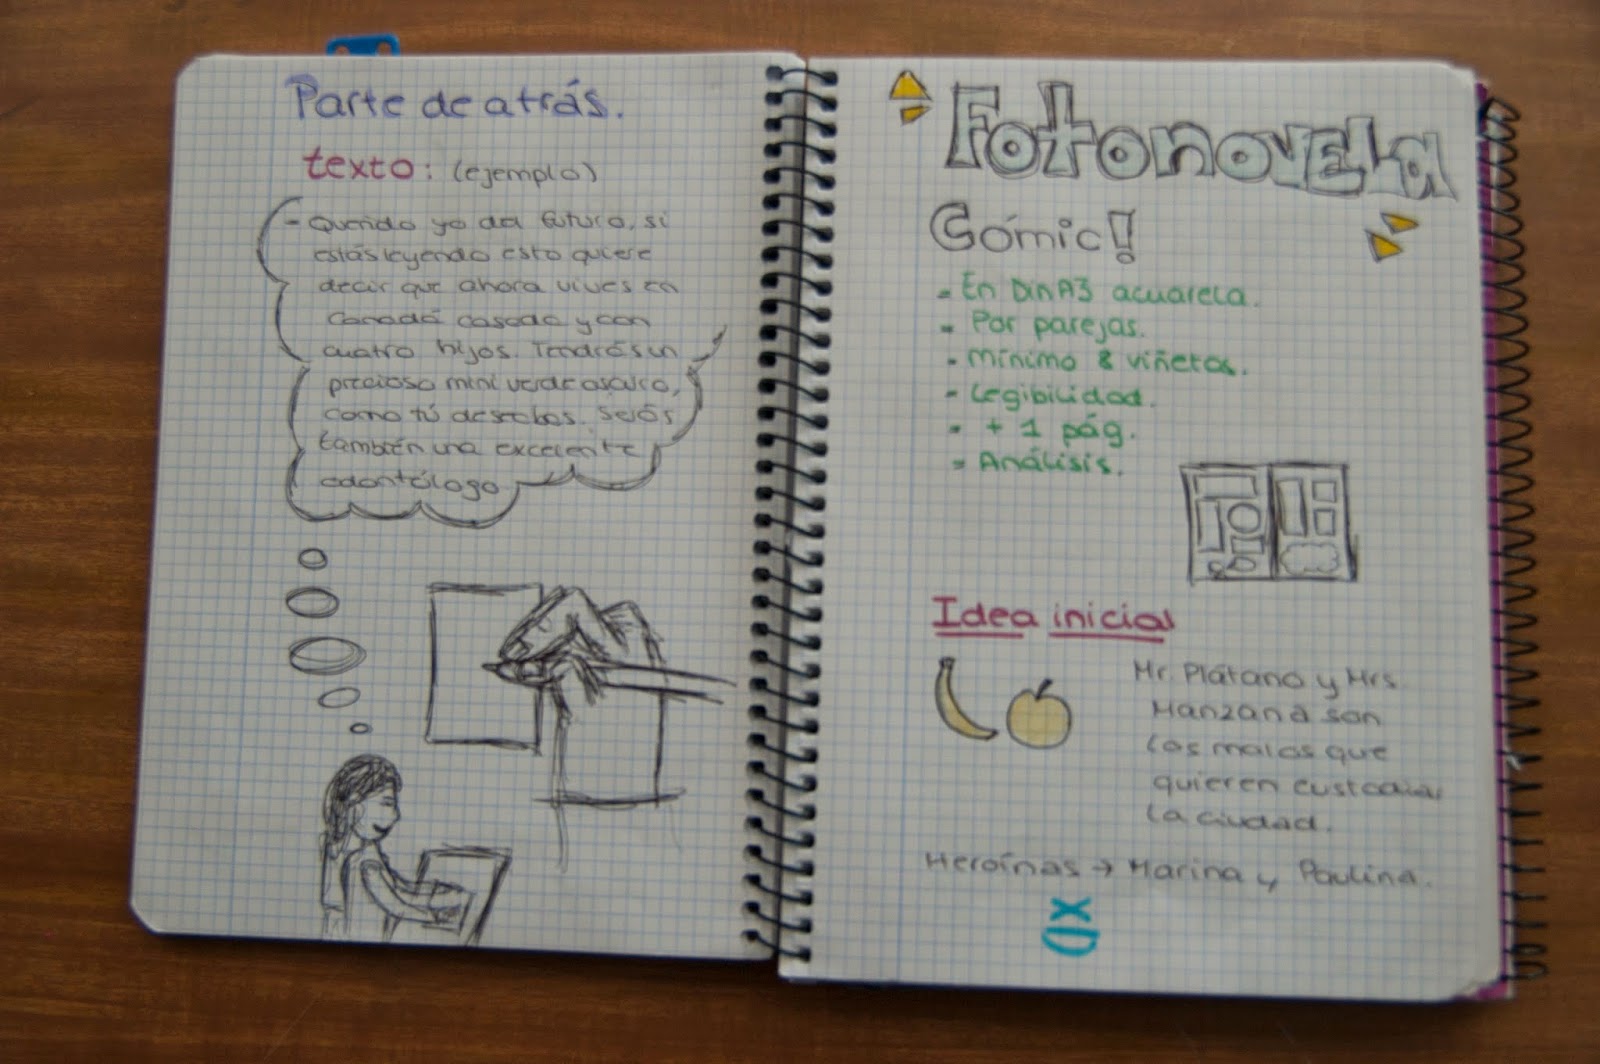 Parte de atrás.
texto: (ejemplo)
- Querido yo del futuro, si
estás leyendo esto quiere
decir que ahora vives en
Canadá casada y con
cuatro hijos. Tendrás un
precioso mini verde oscuro,
como tú deseabas. Serás
también una excelente
odontólogo
Fotonovela
Cómic!
- En DinA3 acuarela.
- Por parejas.
- Mínimo 8 viñetas.
- Legibilidad.
- + 1 pág.
- Análisis.
Idea inicial
Mr. Plátano y Mrs
Manzana son
los malos que
quieren custodiar
la ciudad.
Heroínas → Marina y Paulina.
XD